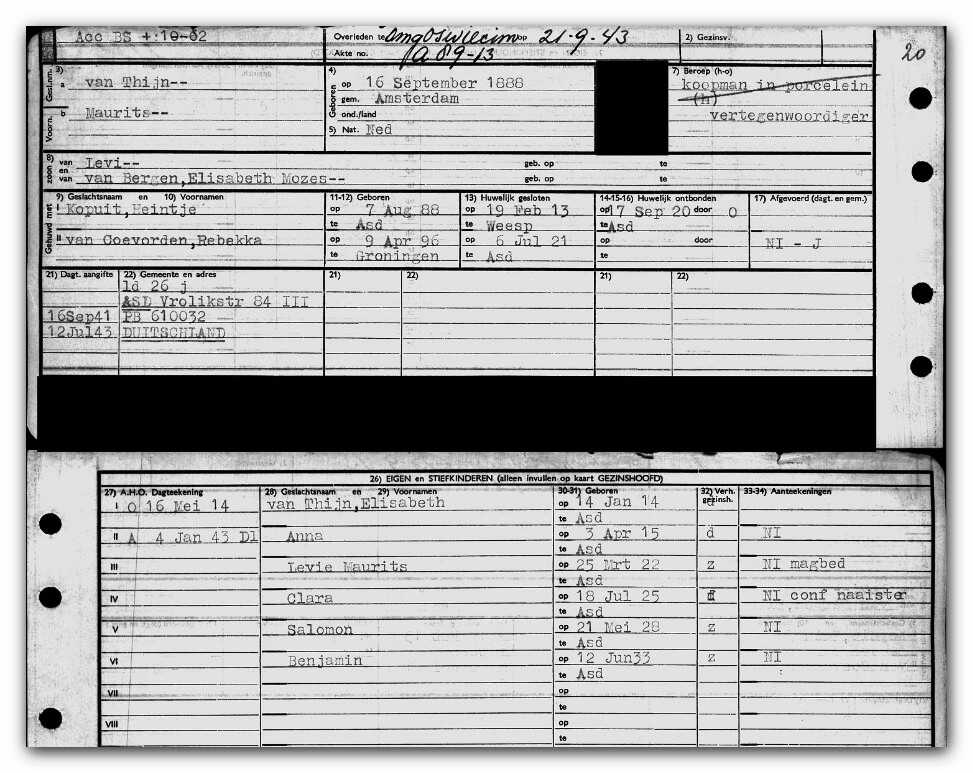 Acc BS +:10-02 Overleden te omg Oswiecim op 21-9-43 2) Gezinsv. 20
Akte no. A 89-13
Gesl.nm. 3) a van Thijn--
Voorn. b Maurits--
4) Geboren op 16 September 1888
gem. Amsterdam
ond./land
5) Nat. Ned
7) Beroep (h-o)
koopman in porcelein
(h)
vertegenwoordiger
8) zoon van Levi-- geb. op te
en van van Bergen,Elisabeth Mozes-- geb. op te
Gehuwd met 9) Geslachtsnaam en 10) Voornamen 11-12) Geboren 13) Huwelijk gesloten 14-15-16) Huwelijk ontbonden 17) Afgevoerd (dagt. en gem.)
I Kopuit,Heintje op 7 Aug 88 op 19 Feb 13 op 17 Sep 20 door O
te Asd te Weesp te Asd
II van Coevorden,Rebekka op 9 Apr 96 op 6 Jul 21 op door NI - J
te Groningen te Asd te
21) Dagt. aangifte 22) Gemeente en adres 21) 22) 21) 22)
ld 26 j
ASD Vrolikstr 84 III
16Sep41 PB 610032
12Jul43 DUITSCHLAND
26) EIGEN en STIEFKINDEREN (alleen invullen op kaart GEZINSHOOFD)
27) A.H.O. Dagteekening 28) Geslachtsnaam en 29) Voornamen 30-31) Geboren 32) Verh. gezinsh. 33-34) Aanteekeningen
I O 16 Mei 14 van Thijn,Elisabeth op 14 Jan 14
te Asd
II A 4 Jan 43 Dl Anna op 3 Apr 15 d NI
te Asd
III Levie Maurits op 25 Mrt 22 z NI magbed
te Asd
IV Clara op 18 Jul 25 d NI conf naaister
te Asd
V Salomon op 21 Mei 28 z NI
te Asd
VI Benjamin op 12 Jun33 z NI
te Asd
VII op
te
VIII op
te